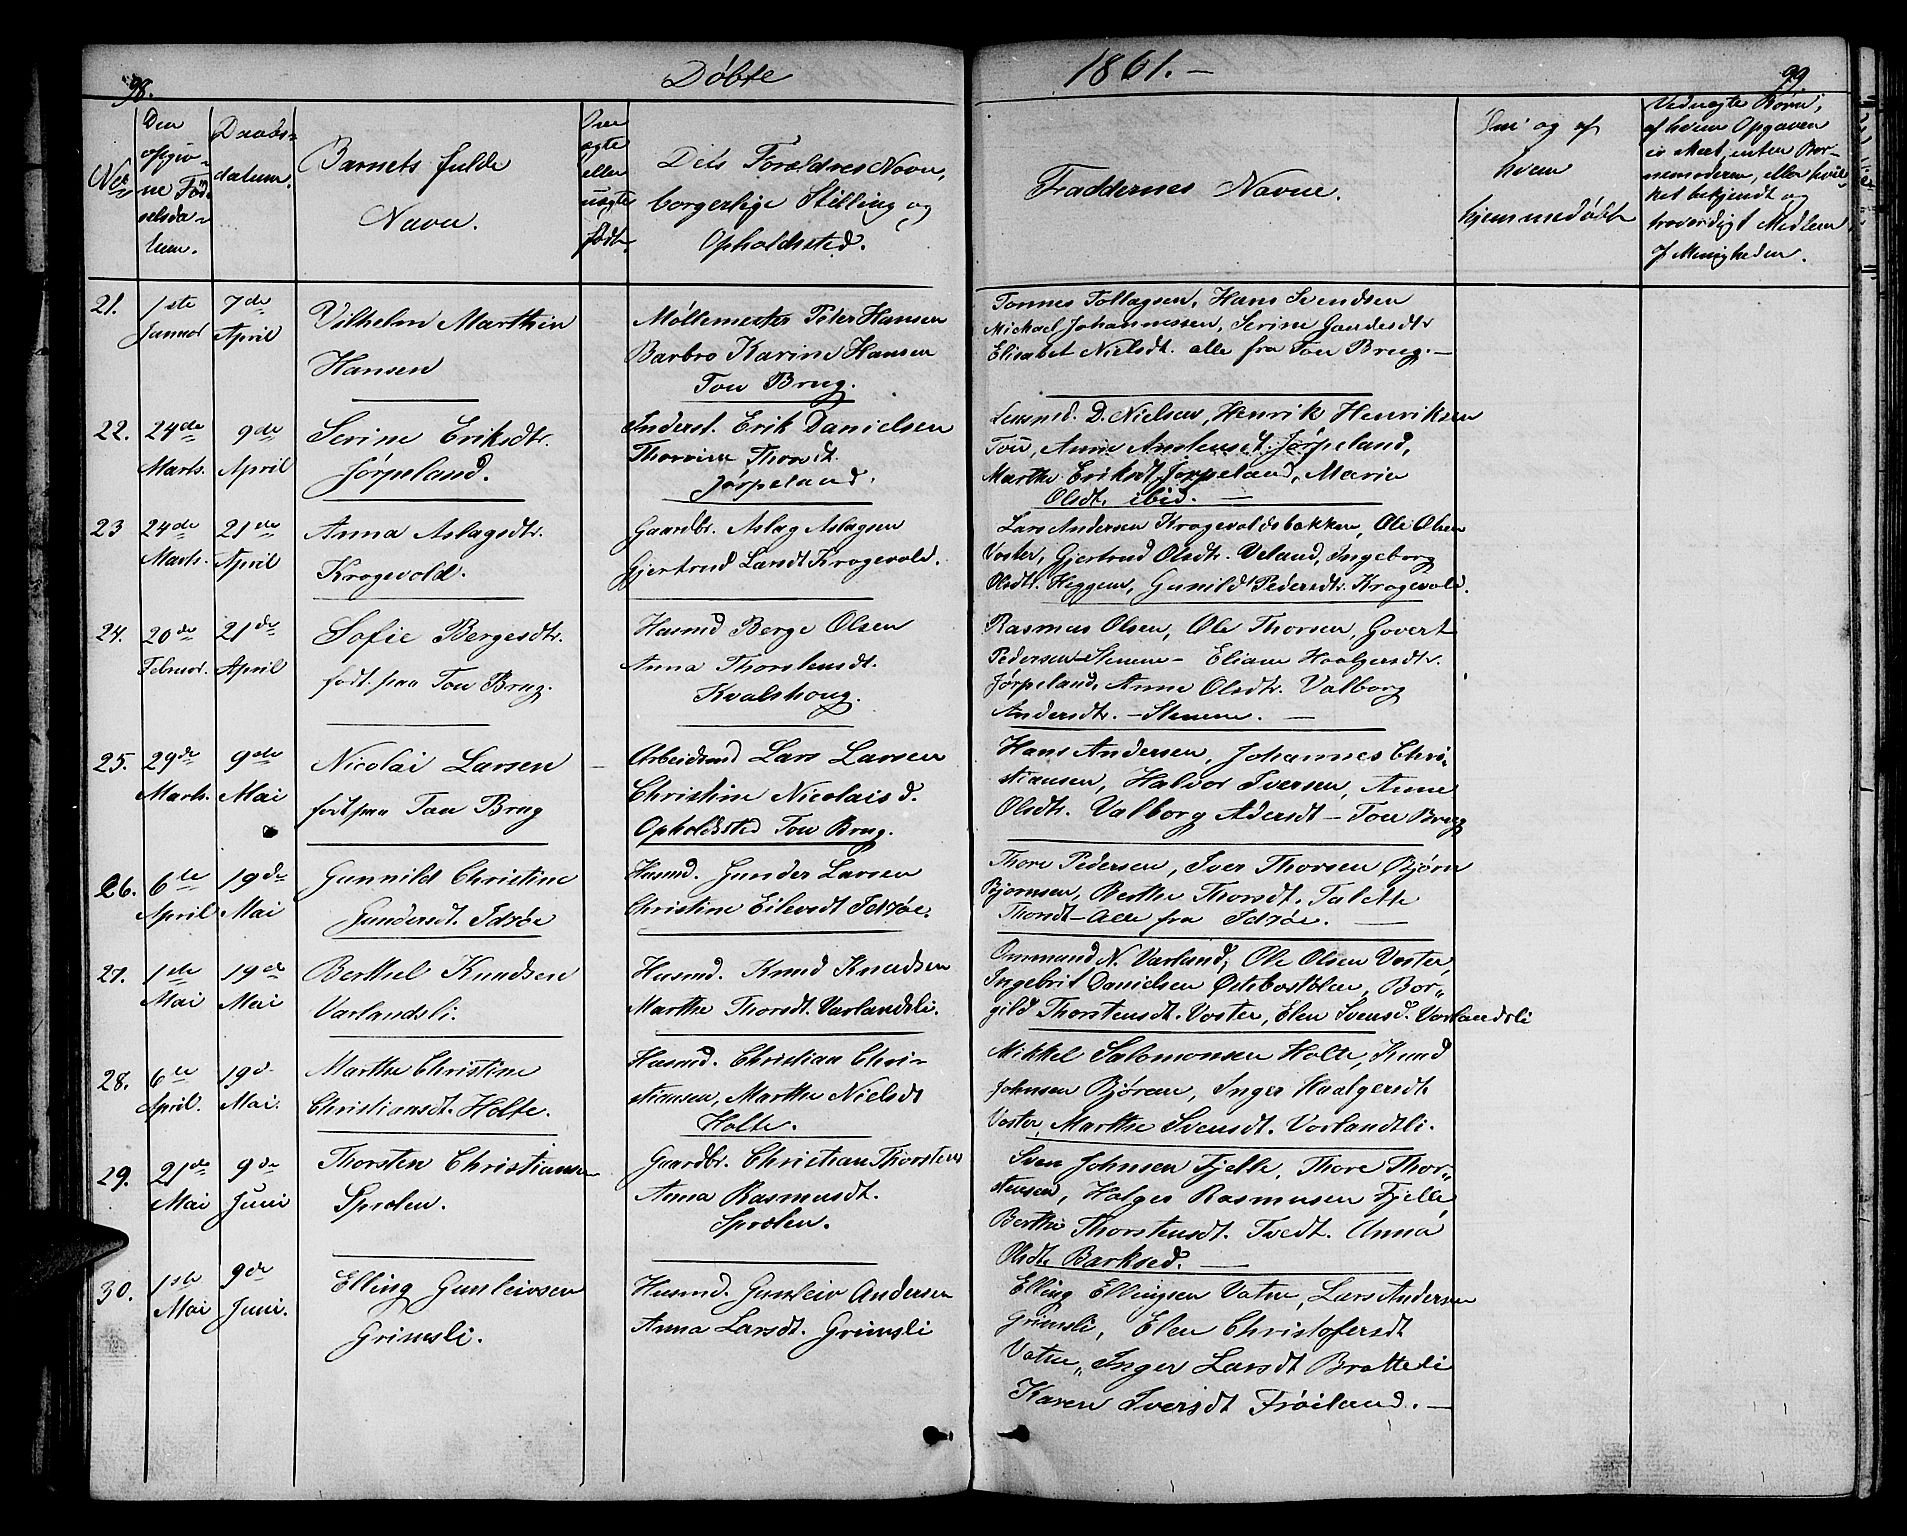 98.
Døbte
1861.-
99
Ner
Den
opgiv-
ne Fød-
selsda-
tum.
Daabs-
datum.
Barnets fulde
Navn.
eller
uægte
født.
Dets Forældres Navn,
borgerlige Stilling og
Opholdssted.
Faddernes Navne.
og af
hvem
hjemmedøbt
Børn,
af hvem Opgaven
er skeet, enten Bar-
nemoderen, eller hvil-
ket bekjendt og
troverdigt Medlem
af Menigheden.
21.
1ste
Januar
7de
April
Vilhelm Marthin
Hansen
Møllemester Peter Hansen
Barbro Karine Hansen
Tou Brug.
Tønnes Tollagsen, Hans Svendsen
Michael Johannessen, Serine Gaudesdtr
Elisabet Nielsdt. alle fra Tou Brug.-
22.
24de
Marts.
9de
April
Serine Eriksdtr.
Jørpeland.
Inderst. Erik Danielsen
Thorsdt.
Jørpeland.
Lensmd. D. Nielsen, Henrik Henriksen
Tou, Anne Jørpeland,
Marthe Eriksdt Jørpeland, Marie
Olsdt. ibid. -
23
24de
Marts.
21de
April
Anna Aslagsdtr.
Kragevold.
Gaardbr. Aslag Aslagsen
Gjertrud Larsdt Kragevold.
Lars Andersen Kragevoldsbakken, Ole Olsen
Voster, Gjertrud Olsdtr. Veland, Ingeborg
Olsdt. Heggem, Gunild Pedersdtr. Kragevold.
24.
20de
Februar.
21de
April
Sofie Bergesdtr.
født paa Tou Brug.
Husmd Berge Olsen
Anna Thorstensdt.
Kvalshoug.
Rasmus Olsen, Ole Thorsen, Govert
Pedersen - Stenene - Eliane Haalgersdtr.
Jørpeland, Anne Olsdtr. Valborg
Andersdtr. - Stenene. -
25.
29de
Marts.
9de
Mai
Nicolai Larsen
født paa Tou Brug
Arbeidsmd Lars Larsen
Christine Nicolaisd.
Opholdssted Tou Brug.
Hans Andersen, Johannes Chri-
stiansen, Halvor Iversen, Anne
Olsdtr. Valborg Adersdt - Tou Brug
26.
6te
April
19de
Mai
Gunnild Christine
Gundersdt. Idsøe
Husmd. Gunder Larsen
Christine Eilevsdt Idsøe.
Thore Pedersen, Iver Thorsen Bjørn
Bjørnsen, Berthe Thorsdt. Talette
Thorsdt - Alle fra Idsøe. -
27.
1ste
Mai
19de
Mai
Berthel Knudsen
Varlandsli.
Husmd. Knud Knudsen
Marthe Thorsdt. Varlandsli.
Ommund N. Varland, Ole Olsen Voster,
Ingebrit Danielsen Østebøstølen, Bor-
gild Thorstensdt. Voster, Elen Svensd. Varlandsli
28.
6te
April.
19d.
Mai.
Marthe Christine
Christiansdt. Holte.
Husmd. Christian Chri-
stiansen, Marthe Nielsdt
Holte.
Mikkel Salomonsen Holte, Knud
Johnsen Bjøren, Inger Haalgersdt.
Voster, Marthe Svensdt. Varlandtli.
29.
21de
Mai
9de
Juni
Thorsten Christiansen
Sprolen.
Gaardbr. Christian Thorstens
Anna Rasmusdt.
Sprolen.
Sven Johnsen Fjelle, Thore Thor-
stensen, Holger Rasmusen Fjelle,
Berthe Thorstensdt. Tvedt. Anna
Olsdt. Barksed. -
30.
1ste
Mai
9de
Juni.
Elling Gunleivsen
Grimsli.
Husmd. Gunleiv Andersen
Anna Larsdt. Grimsli
Elling Ellingsen Vatne, Lars Andersen
Grimsli, Elen Christofersdt
Vatne, Inger Larsdt Bratteli
Karen Iversdt Frøiland. -